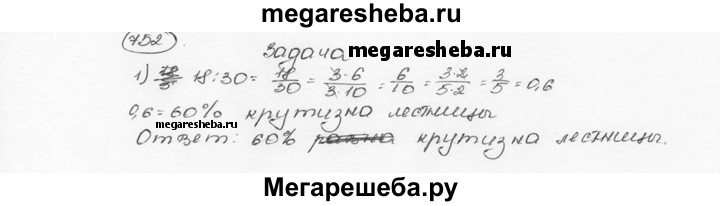 megaresheba.ru
752.
Задача
megaresheba.ru
1) 18:30 = 18/30 = 3·6/3·10 = 6/10 = 3·2/5·2 = 3/5 = 0,6
0,6 = 60% крутизна лестницы
megaresheba.ru
Ответ: 60% крутизна лестницы.
Мегарешеба.ру